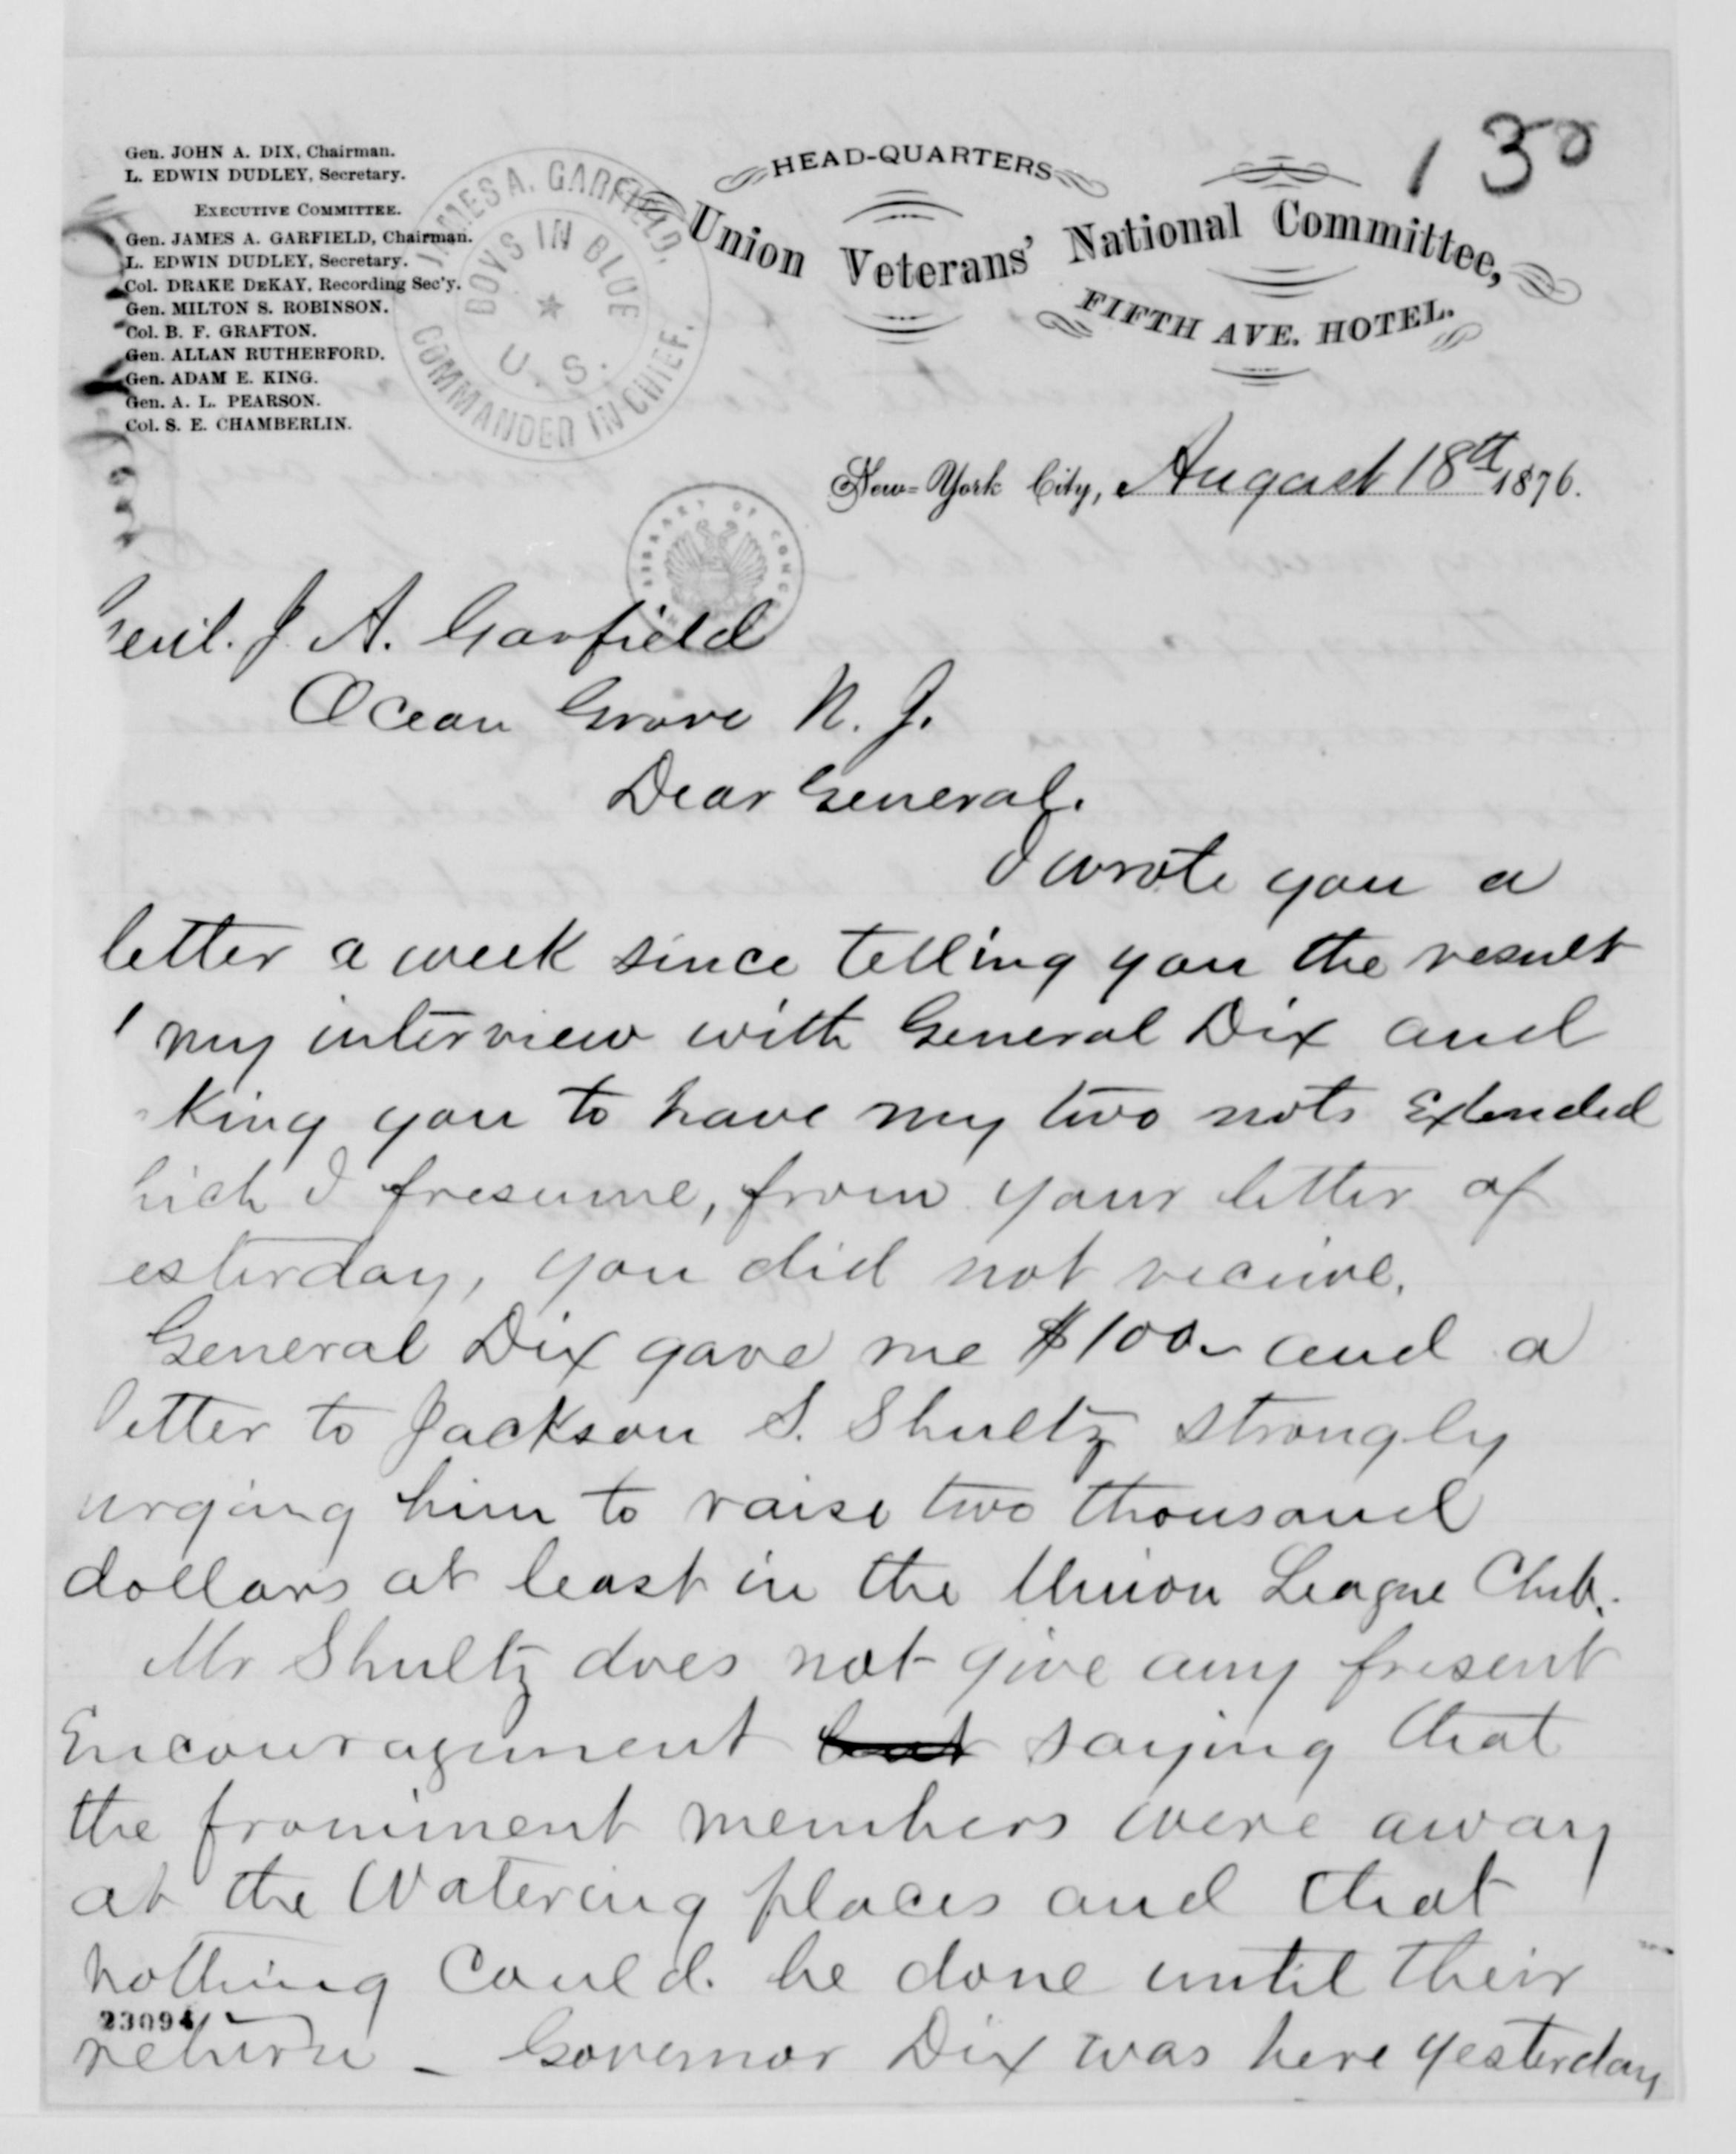 130
Gen. JOHN A. DIX, Chairman.
L. EDWIN DUDLEY, Secretary.
EXECUTIVE COMMITTEE.
Gen. JAMES A. GARFIELD, Chairman.
L. EDWIN DUDLEY, Secretary.
Col. DRAKE DEKAY, Recording Sec'y.
Gen. MILTON S. ROBINSON.
Col. B. F. GRAFTON.
Gen. ALLAN RUTHERFORD.
Gen. ADAM E. KING.
Gen. A. L. PEARSON.
Col. S. E. CHAMBERLIN.
JAMES A. GARFIELD,
COMMANDER IN CHIEF.
BOYS IN BLUE
U. S.
HEAD-QUARTERS
Union Veterans' National Committee,
FIFTH AVE. HOTEL.
New-York City, August 18th 1876.
LIBRARY OF CONG
Genl. J. A. Garfield
Ocean Grove N. J.
Dear General.
I wrote you a
letter a week since telling you the result
my interview with General Dix and
king you to have my two nots Extended
hich I presume, from your letter of
esterday, you did not receive.
General Dix gave me $100- and a
letter to Jackson S. Shultz strongly
urging him to raise two thousand
dollars at least in the Union League Club.
Mr Shultz does not give any present
Encouragement but saying that
the prominent members were away
at the Watering places and that
nothing Could be done until their
23094
return - Governor Dix was here yesterday